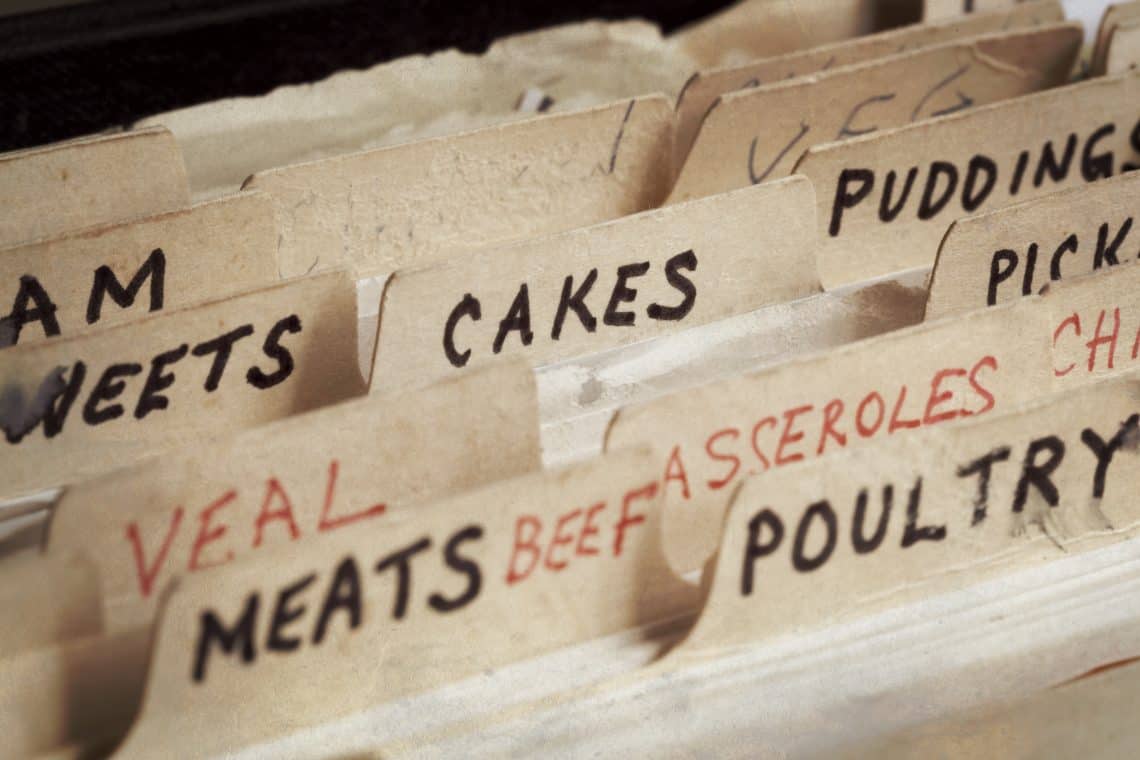 VEG
PUDDINGS
AM
CAKES
PICK
WEETS
CHI
ASSEROLES
VEAL
MEATS BEEF
POULTRY